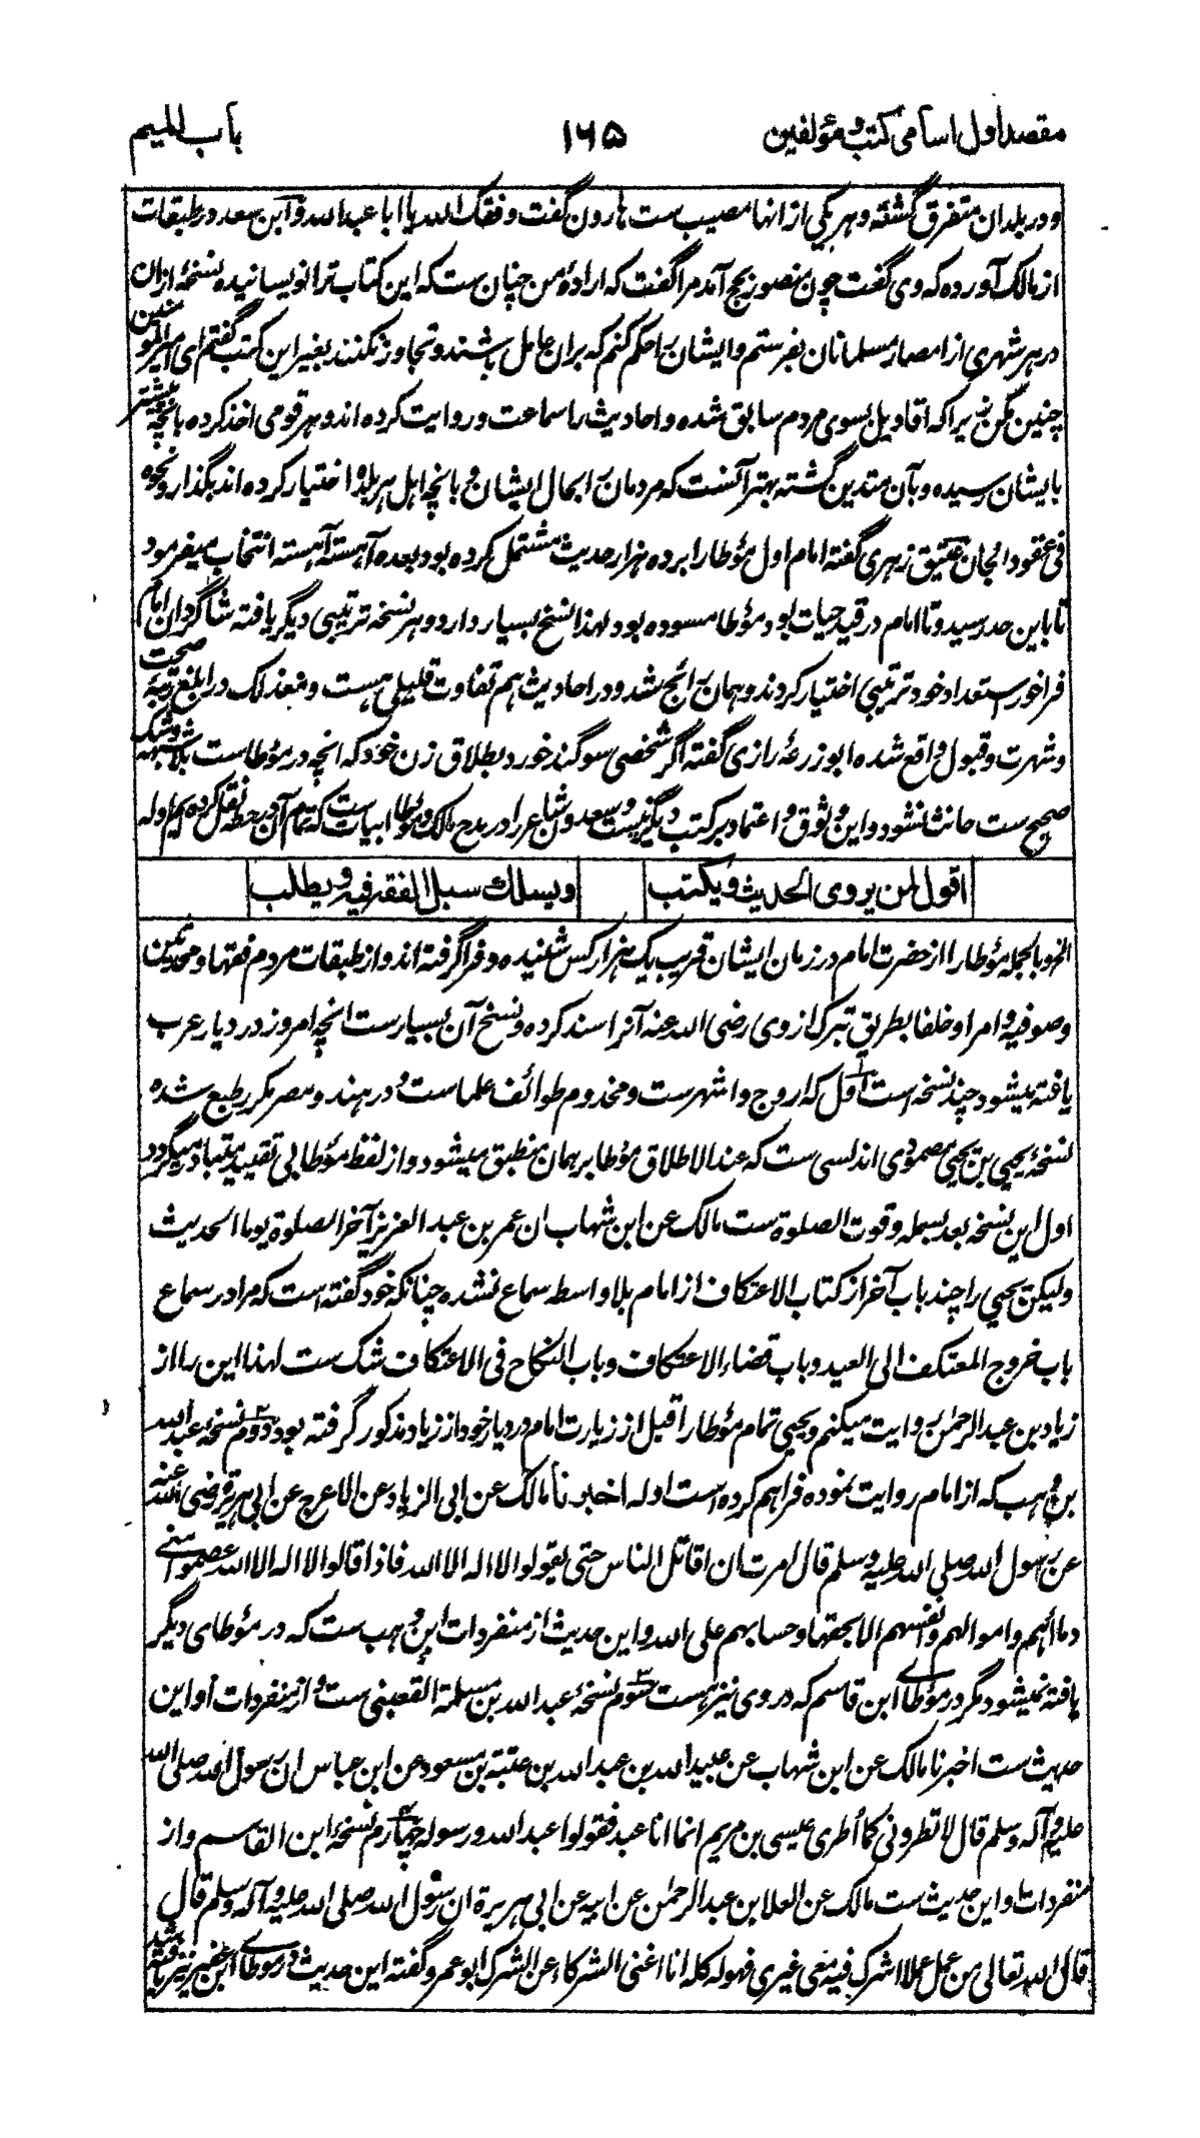 مقصد اول اسامی کتب و مؤلفین ۱۶۵ باب المیم
و در بلدان متفرق گشته و هر یکی از انها مصیب ست هارون گفت وفقك الله یا ابا عبد الله و ابن سعد در طبقات
از مالک آورده که وی گفت چون منصور بحج آمد مرا گفت که اراده من چنان ست که این کتاب ترا نویسانیده نسخهٔ ازان
در هر شهری از امصار مسلمانان بفرستم و ایشان را حکم کنم که بران عامل باشند و تجاوز نکنند بغیر این کتب گفتم ای امیر المومنین
چنین مکن زیرا که اقاویل بسوی مردم سابق شده و احادیث را سماعت و روایت کرده اند و هر قومی اخذ کرده بانچه پیشتر
بایشان رسیده و بآن متدین گشته بهتر آنست که مردمان را بحال ایشان و بانچه اهل هر بلد اختیار کرده اند بگذار و نحوه
فی عقود الجمان عتیق زهری گفته امام اول مؤطا را بر ده هزار حدیث مشتمل کرده بود بعده آهسته آهسته انتخاب میفرمود
تا باین حد رسید و تا امام در قید حیات بود مؤطا مسوده بود لهذا نسخ بسیار دارد و هر نسخه ترتیبی دیگر یافته شاگردان امام
فراخور استعداد خود ترتیبی اختیار کردند و همان رائج شد و در احادیث هم تفاوت قلیلی هست و معذلک در ابلغ مرتبهٔ صحت
و شهرت و قبول واقع شده ابو زرعهٔ رازی گفته اگر شخصی سوگند خورد بطلاق زن خود که انچه در مؤطاست بلا شبهه و شک
صحیح ست حانث نشود و این وثوق و اعتماد بر کتب دیگر نیست و سعدون شاعر را در مدح مالک و مؤطا ابیات ست که تمام آن در حطه نقل کرده ایم اوله
اقول لمن یروی الحدیث ویکتب ویسلك سبل الفقه فیه ویطلب
الخ و بالجمله مؤطا را از حضرت امام در زمان ایشان قریب یک هزار کس شنیده و فرا گرفته اند و از طبقات مردم فقها و محدثین
و صوفیه و امرا و خلفا بطریق تبرک از وی رضی الله عنه آنرا سند کرده و نسخ آن بسیارست انچه امروز در دیار عرب
یافته میشود چند نسخه است اول که اروج و اشهرست و مخدوم طوائف علماست و در هند و مصر مکرر طبع شده
نسخهٔ یحیی بن یحیی مصمودی اندلسی ست که عند الاطلاق مؤطا بر همان منطبق میشود و از لفظ مؤطا بی تقیید متبادر میگردد
اول این نسخه بعد بسمله وقوت الصلوة ست مالک عن ابن شهاب ان عمر بن عبد العزیز آخر الصلوة یوما الحدیث
ولیکن یحیی را چند باب آخر از کتاب الاعتکاف از امام بلا واسطه سماع نشده چنانکه خود گفته است که مرا در سماع
باب خروج المعتکف الی العید و باب قضاء الاعتکاف و باب النکاح فی الاعتکاف شک ست لهذا این را از
زیاد بن عبد الرحمن روایت میکنم و یحیی تمام مؤطا را قبل از زیارت امام در دیار خود از زیاد مذکور گرفته بود دوم نسخهٔ عبد الله
بن وهب که از امام روایت نموده فراهم کرده است اوله اخبرنا مالک عن ابی الزیاد عن الاعرج عن ابی هریرة رضی الله عنه
عن رسول الله صلی الله علیه وسلم قال امرت ان اقاتل الناس حتی یقولوا لا اله الا الله فاذا قالوا لا اله الا الله عصموا منی
دماءهم واموالهم وانفسهم الا بحقها وحسابهم علی الله و این حدیث از منفردات ابن وهب ست که در مؤطای دیگر
یافته نمیشود مگر در مؤطای ابن قاسم که در وی نیز هست سوم نسخهٔ عبد الله بن مسلمة القعنبی ست و از منفردات او این
حدیث ست اخبرنا مالک عن ابن شهاب عن عبید الله بن عبد الله بن عتبة بن مسعود عن ابن عباس ان رسول الله صلی الله
علیه وآله وسلم قال لا تطرونی کما أطری عیسی بن مریم انما انا عبد فقولوا عبد الله ورسوله چهارم نسخهٔ ابن القاسم و از
منفردات او این حدیث ست مالک عن العلا بن عبد الرحمن عن ابیه عن ابی هریرة ان رسول الله صلی الله علیه وآله وسلم قال
قال الله تعالی من عمل عملا اشرک فیه معی غیری فهو له کله انا اغنی الشرکاء عن الشرک ابو عمرو گفته این حدیث در مؤطای ابن عفیر نیز یافته شد